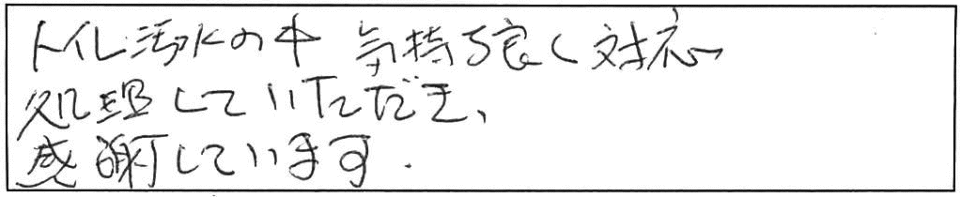 トイレ汚水の中 気持ち良く対応
処理していただき、
感謝しています.